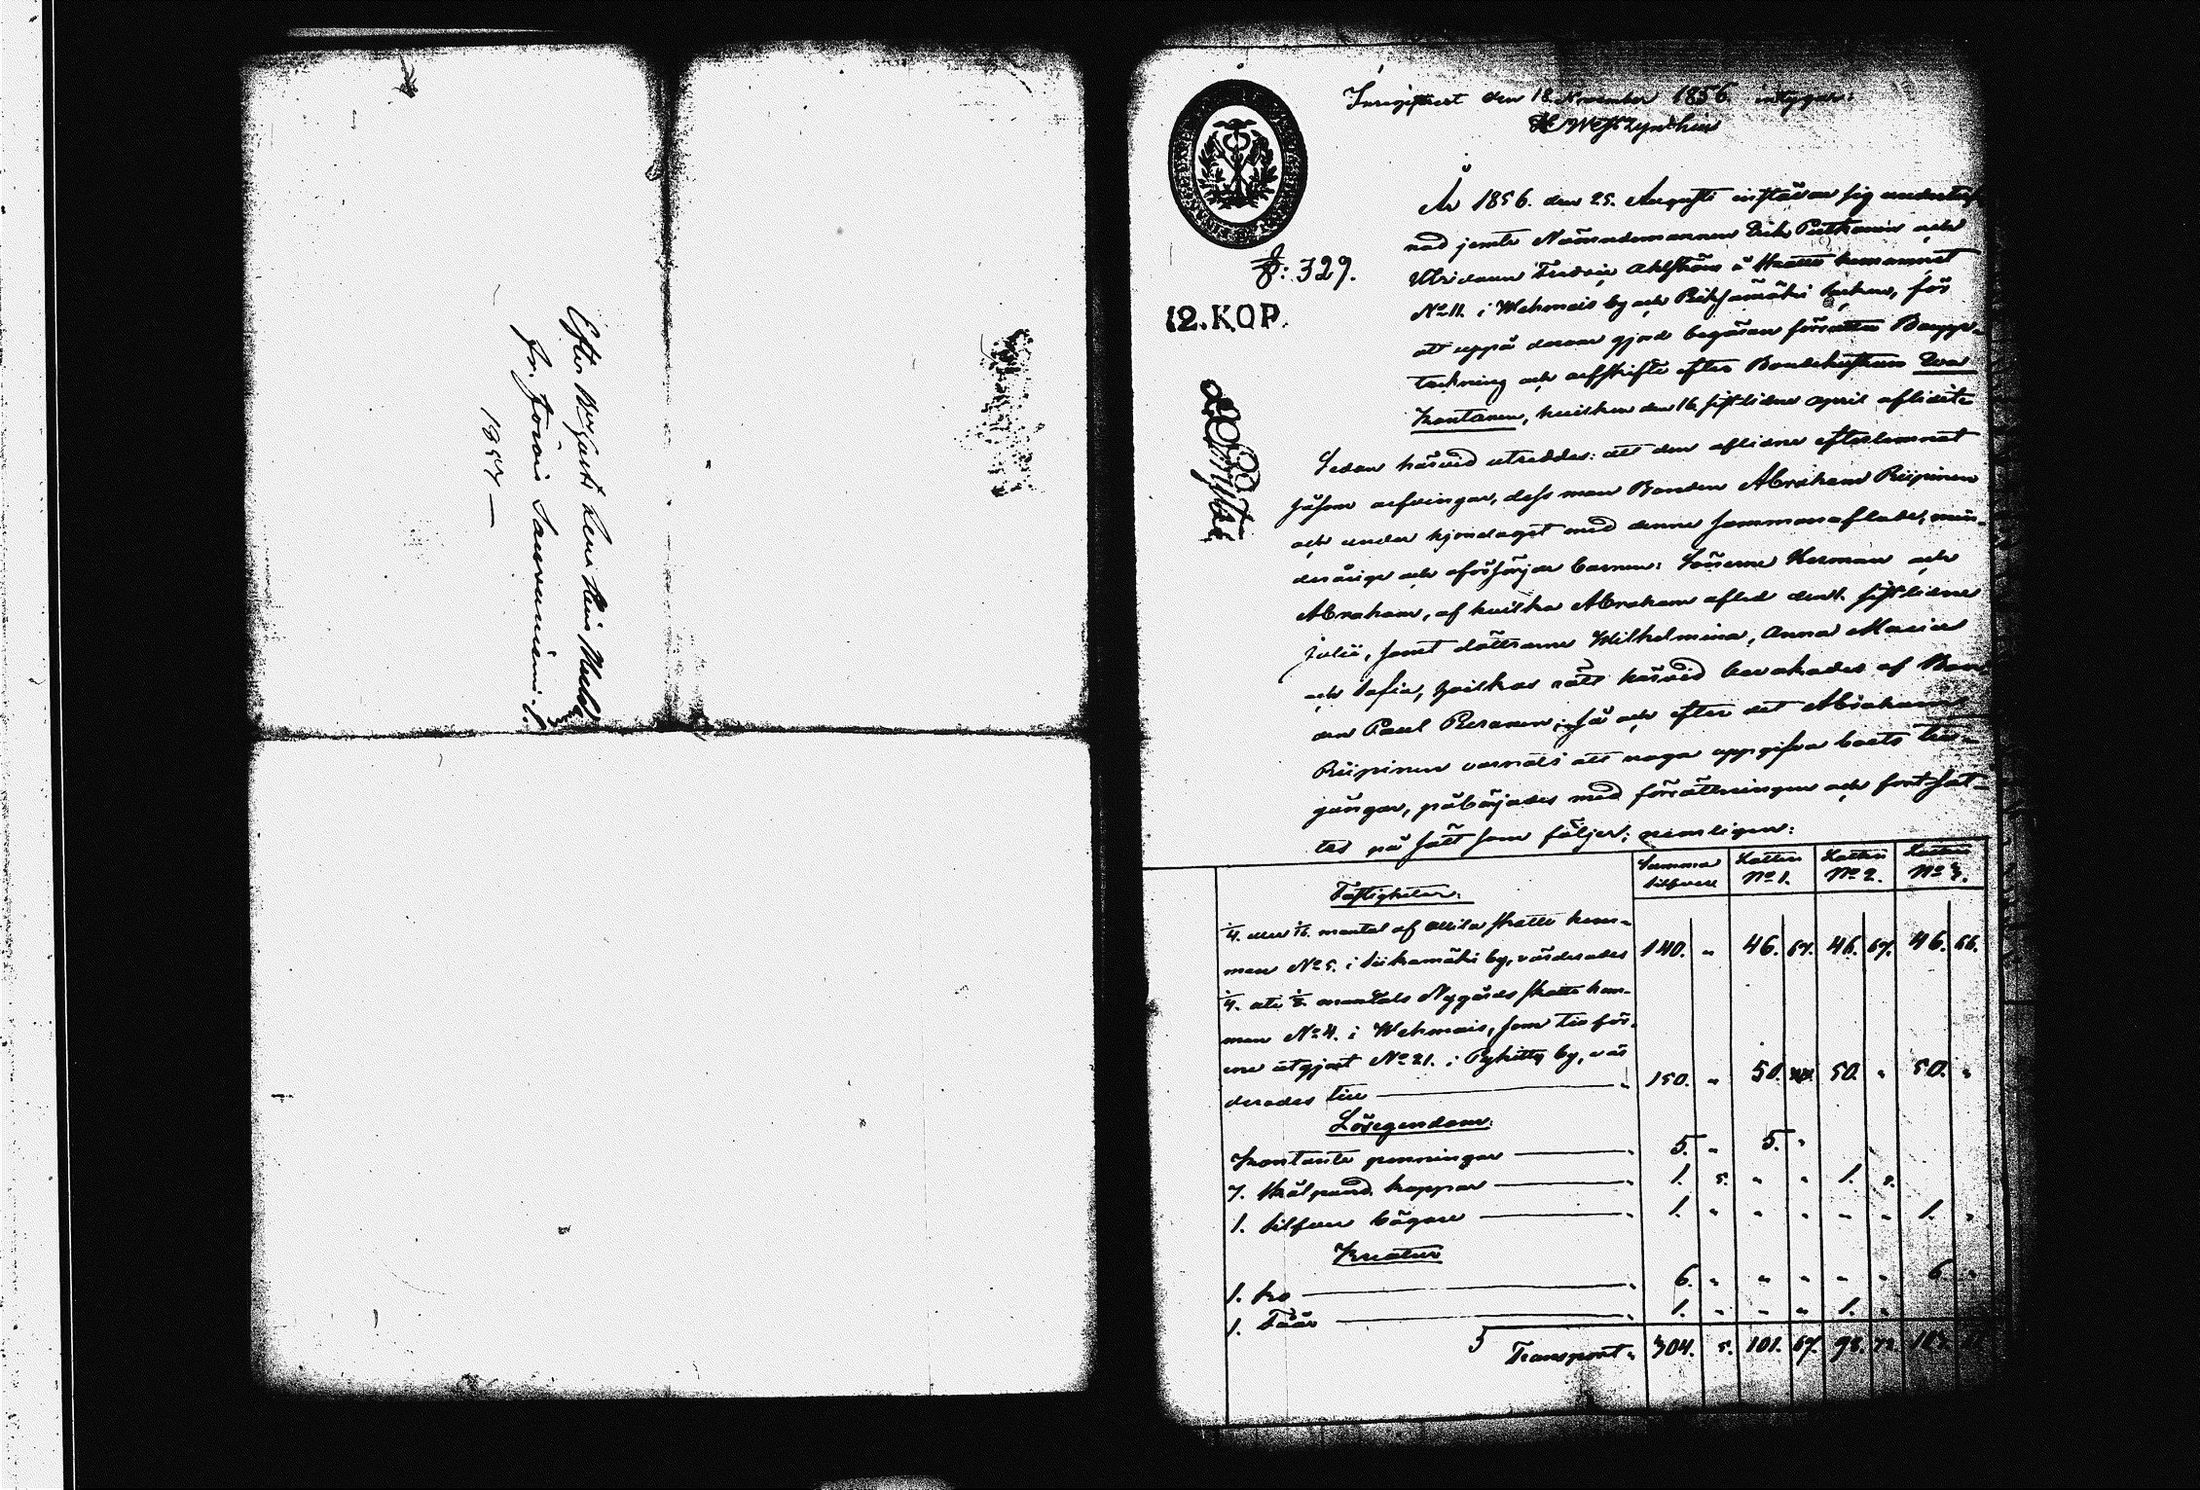 Efter
fr. Jorois
1857 —
Inregistrert den 18 November 1856. intygar:
f: 329.
12. KOP.
År 1856. den 25. Augusti inställdes sig underteck-
nad jemte Nämndemannen Erik Putkonen och
Fredric Ahlström å skatte hemmanet
No 11. i Wehmais by och socken, för
att uppå derom gjord begäran författa Boupp-
teckning och arfskifte efter Bondehustrun Eva
Kontanen, hvilken den 16 sistlidne April aflidit.
Sedan härvid utreddes: att den aflidne efterlemnat
såsom arfvingar, dess man Bonden Abraham Riipinen
och under hjonelaget med denne sammanaflade, min-
derårige och oförsörjda barnen: Sönerne Herman och
Abraham, af hvilka Abraham afled den 1. sistlidne
julii, samt döttrarne Wilhelmina, Anna Maria
och Sofia, hvilkas rätt härvid bevakades af Bon-
den Paul; så och efter det Abraham
Riipinen varnats att noga uppgifva boets till-
gångar, påbörjades med förrättningen och fortsat-
tes på sätt som följer; nemligen:
Summa Silfver Lotten No 1. Lotten No 2. Lotten No 3.
Fastigheter:
1/4. mantal af skatte hem-
man No 5. i Siikamäki by, värderades 140. " 46. 67. 46. 67. 46. 66.
1/4. mantals Nygårds skatte hem-
man No 4. i Wehmais, som till för-
ene utgjort No 21. i by, vär
derades till — 150. " 50. 50. " 50. "
Lösegendom:
Kontante penningar — 5. " 5. "
7. skålpund koppar — 1. 5. " " 1. 5.
1. silfver bägare — 1. " " " " " 1. "
Kreatur
1. ko — 6. " " " " " 6. "
1. Får — 1. " " " 1. "
Transport " 304. 5. 101. 67. 98. 72.